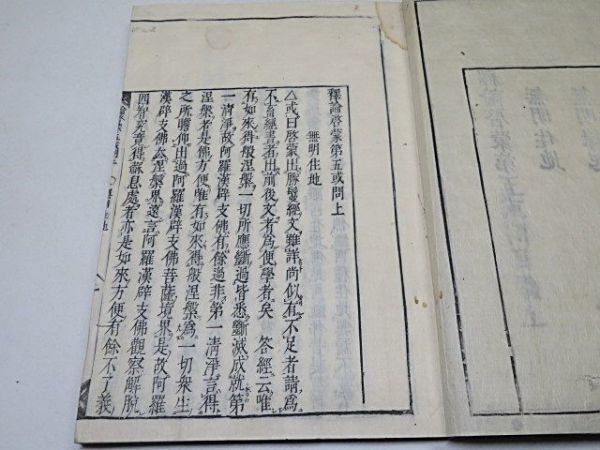 釋論啓蒙第五或問上
無明住地
△或曰啓蒙出勝鬘經文雖詳尚似有不足者請爲
不畜經書者出前後文者爲便學者矣 答經云唯
有如來得般涅槃一切所應斷過皆悉斷滅成就第
一清淨故阿羅漢辟支佛有餘過非第一清淨言得
涅槃者是佛方便唯有如來得般涅槃爲一切衆生
之所瞻仰出過阿羅漢辟支佛菩薩境界是故阿羅
漢辟支佛去涅槃界遠言阿羅漢辟支佛觀察解脫
四智究竟得蘇息處者亦是如來方便有餘不了義